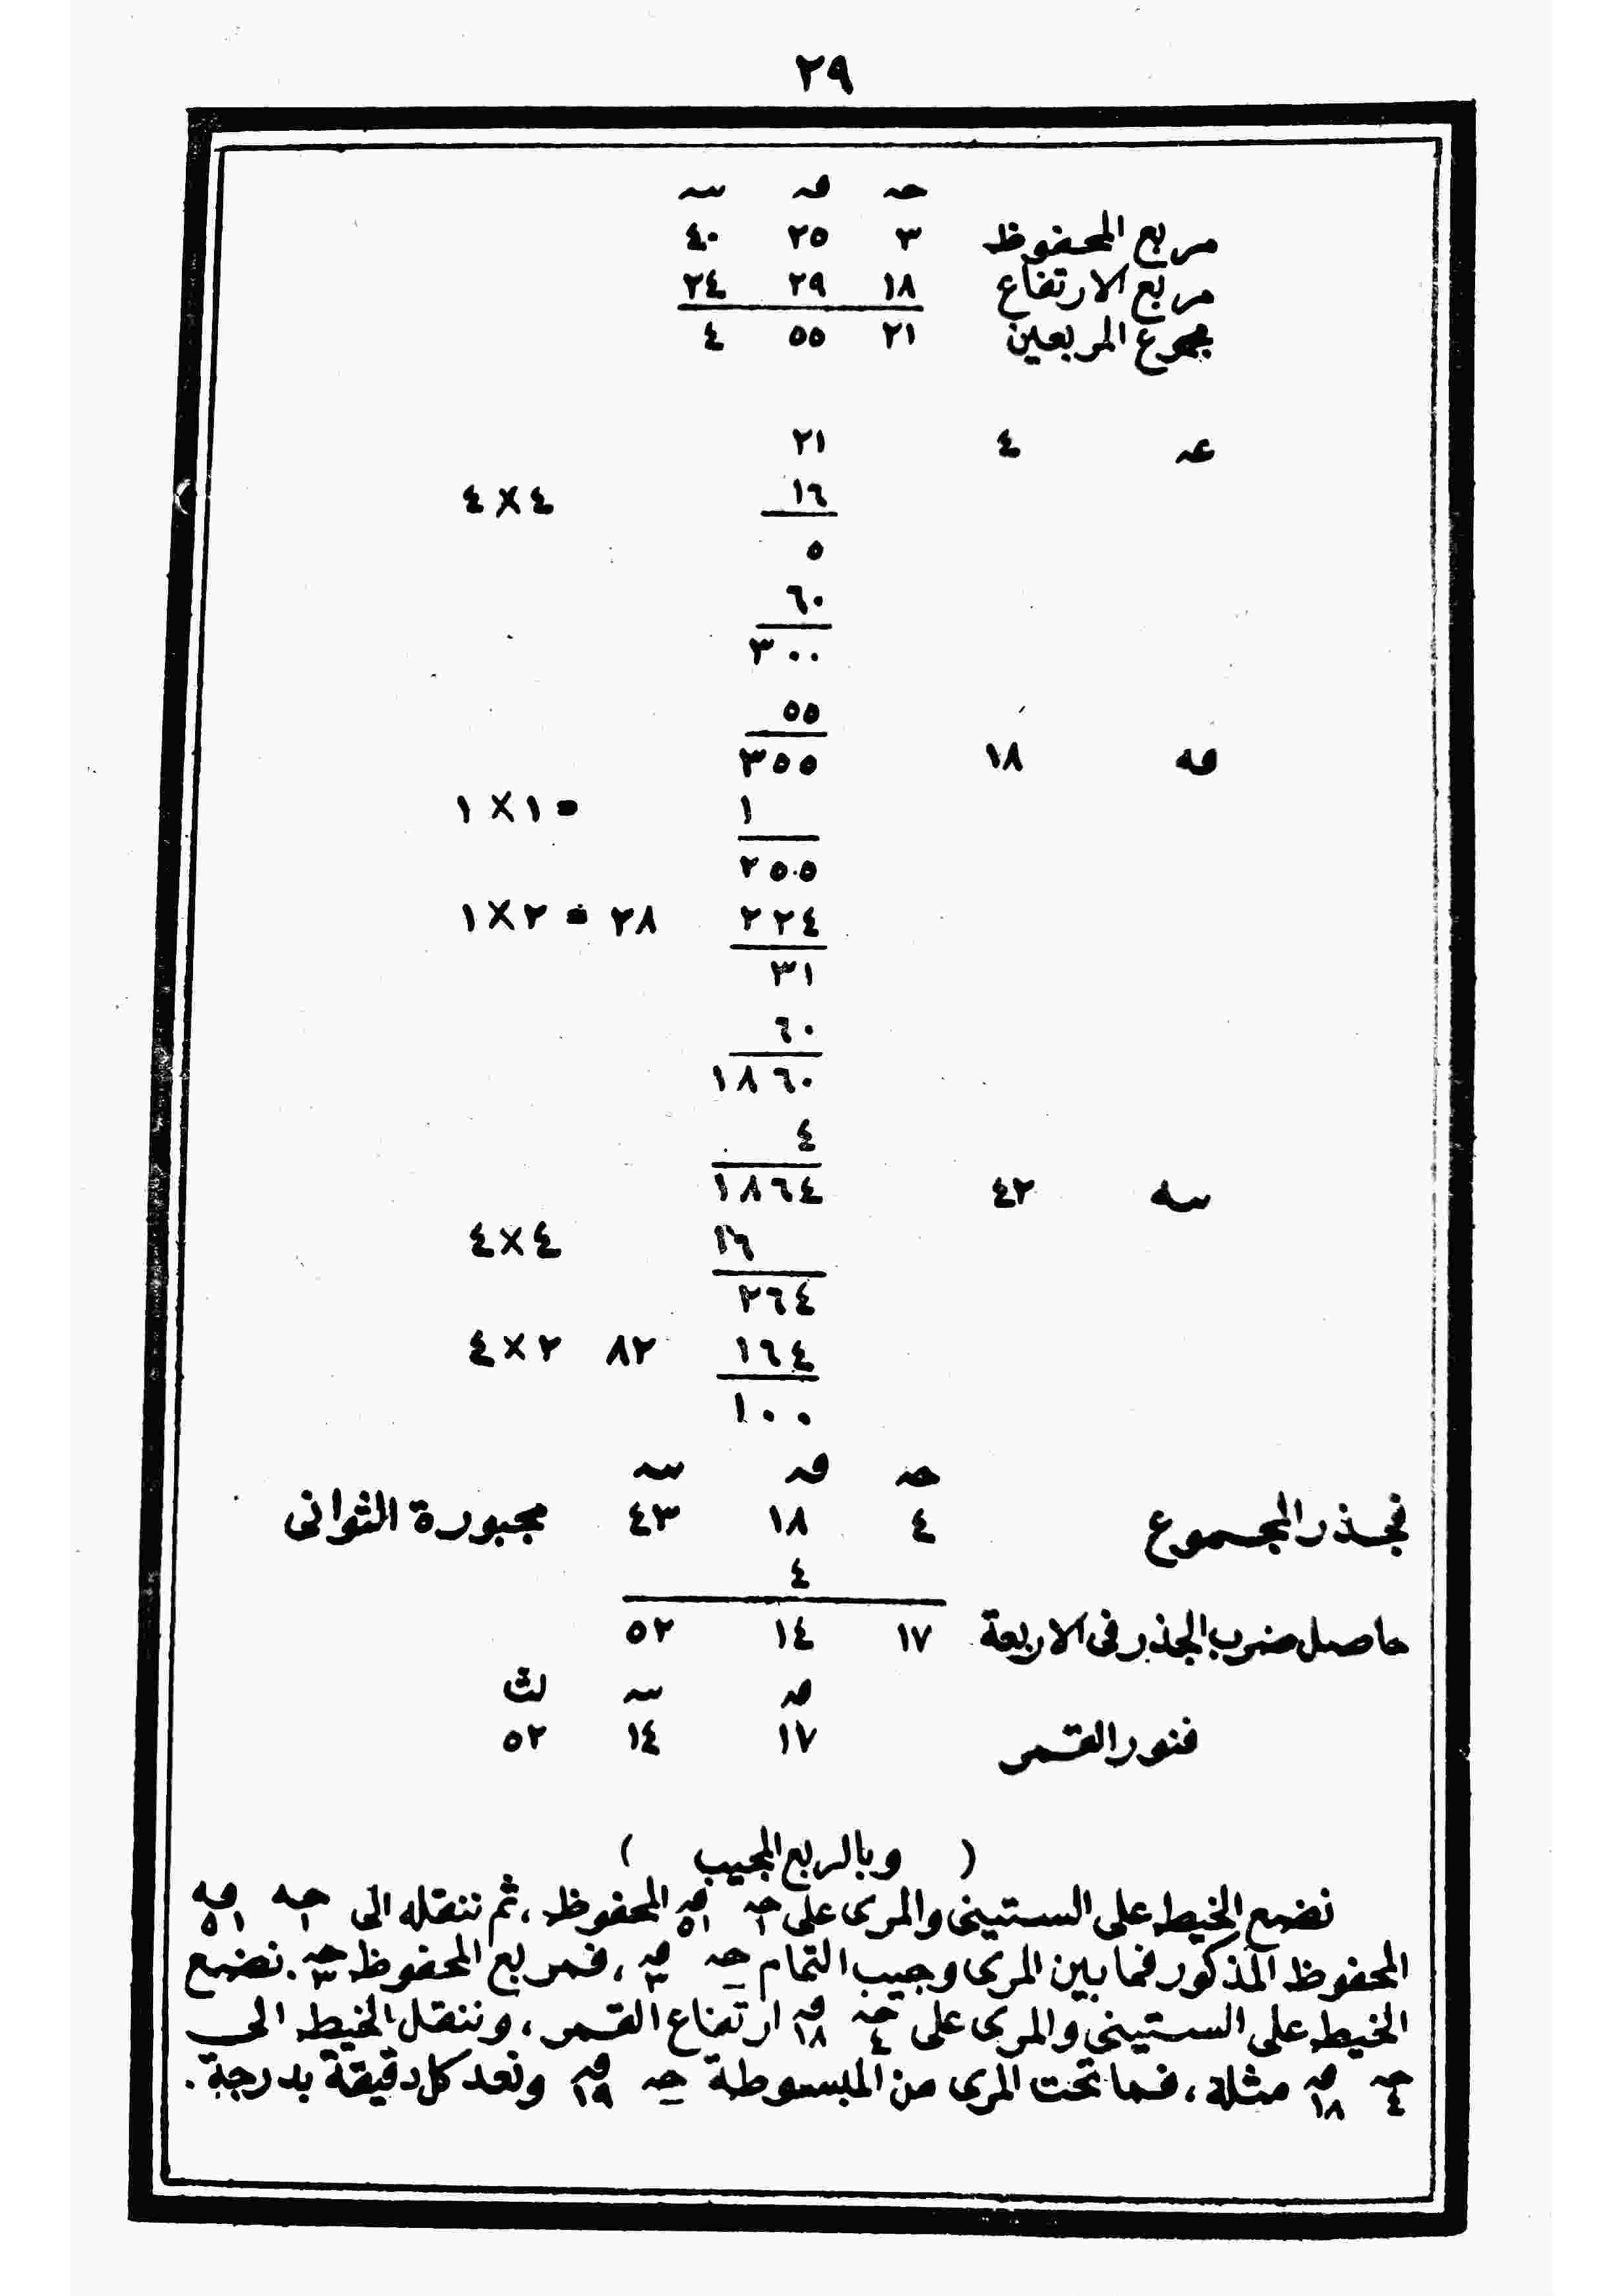 ٢٩
حہ قہ سہ
مربع المحفوظ ٣ ٢٥ ٤٠
مربع الارتفاع ١٨ ٢٩ ٢٤
مجموع المربعين ٢١ ٥٥ ٤
حہ ٤ ٢١
١٦ ٤×٤
٥
٦٠
٣٠٠
٥٥
قہ ١٨ ٣٥٥
١ ١×١٠
٢٥٥
٢٢٤ ٢٨ ٠ ١×٢
٣١
٦٠
١٨٦٠
٤
سہ ٤٢ ١٨٦٤
١٦ ٤×٤
٢٦٤
١٦٤ ٨٢ ٤×٢
١٠٠
حہ قہ سہ
فجذر المجموع ٤ ١٨ ٤٣ مجبورة الثوانى
٤
حاصل ضرب الجذر فى الاربعة ١٧ ١٤ ٥٢
قہ سہ لث
فنور القمر ١٧ ١٤ ٥٢
( وبالربع المجيب )
نضع الخيط على الستينى والمرى على حہ ١ قہ ٥١ المحفوظ ، ثم ننقله الى حہ ١ قہ ٥١
المحفوظ المذكور فما بين المرى وجيب التمام حہ قہ ٣ ، فمربع المحفوظ حہ ٣ . نضع
الخيط على الستينى والمرى على حہ ٤ قہ ١٨ ارتفاع القمر ، وننقل الخيط الى
حہ ٤ قہ ١٨ مثله ، فما تحت المرى من المبسوطة حہ قہ ١٩ ونعد كل دقيقة بدرجة .